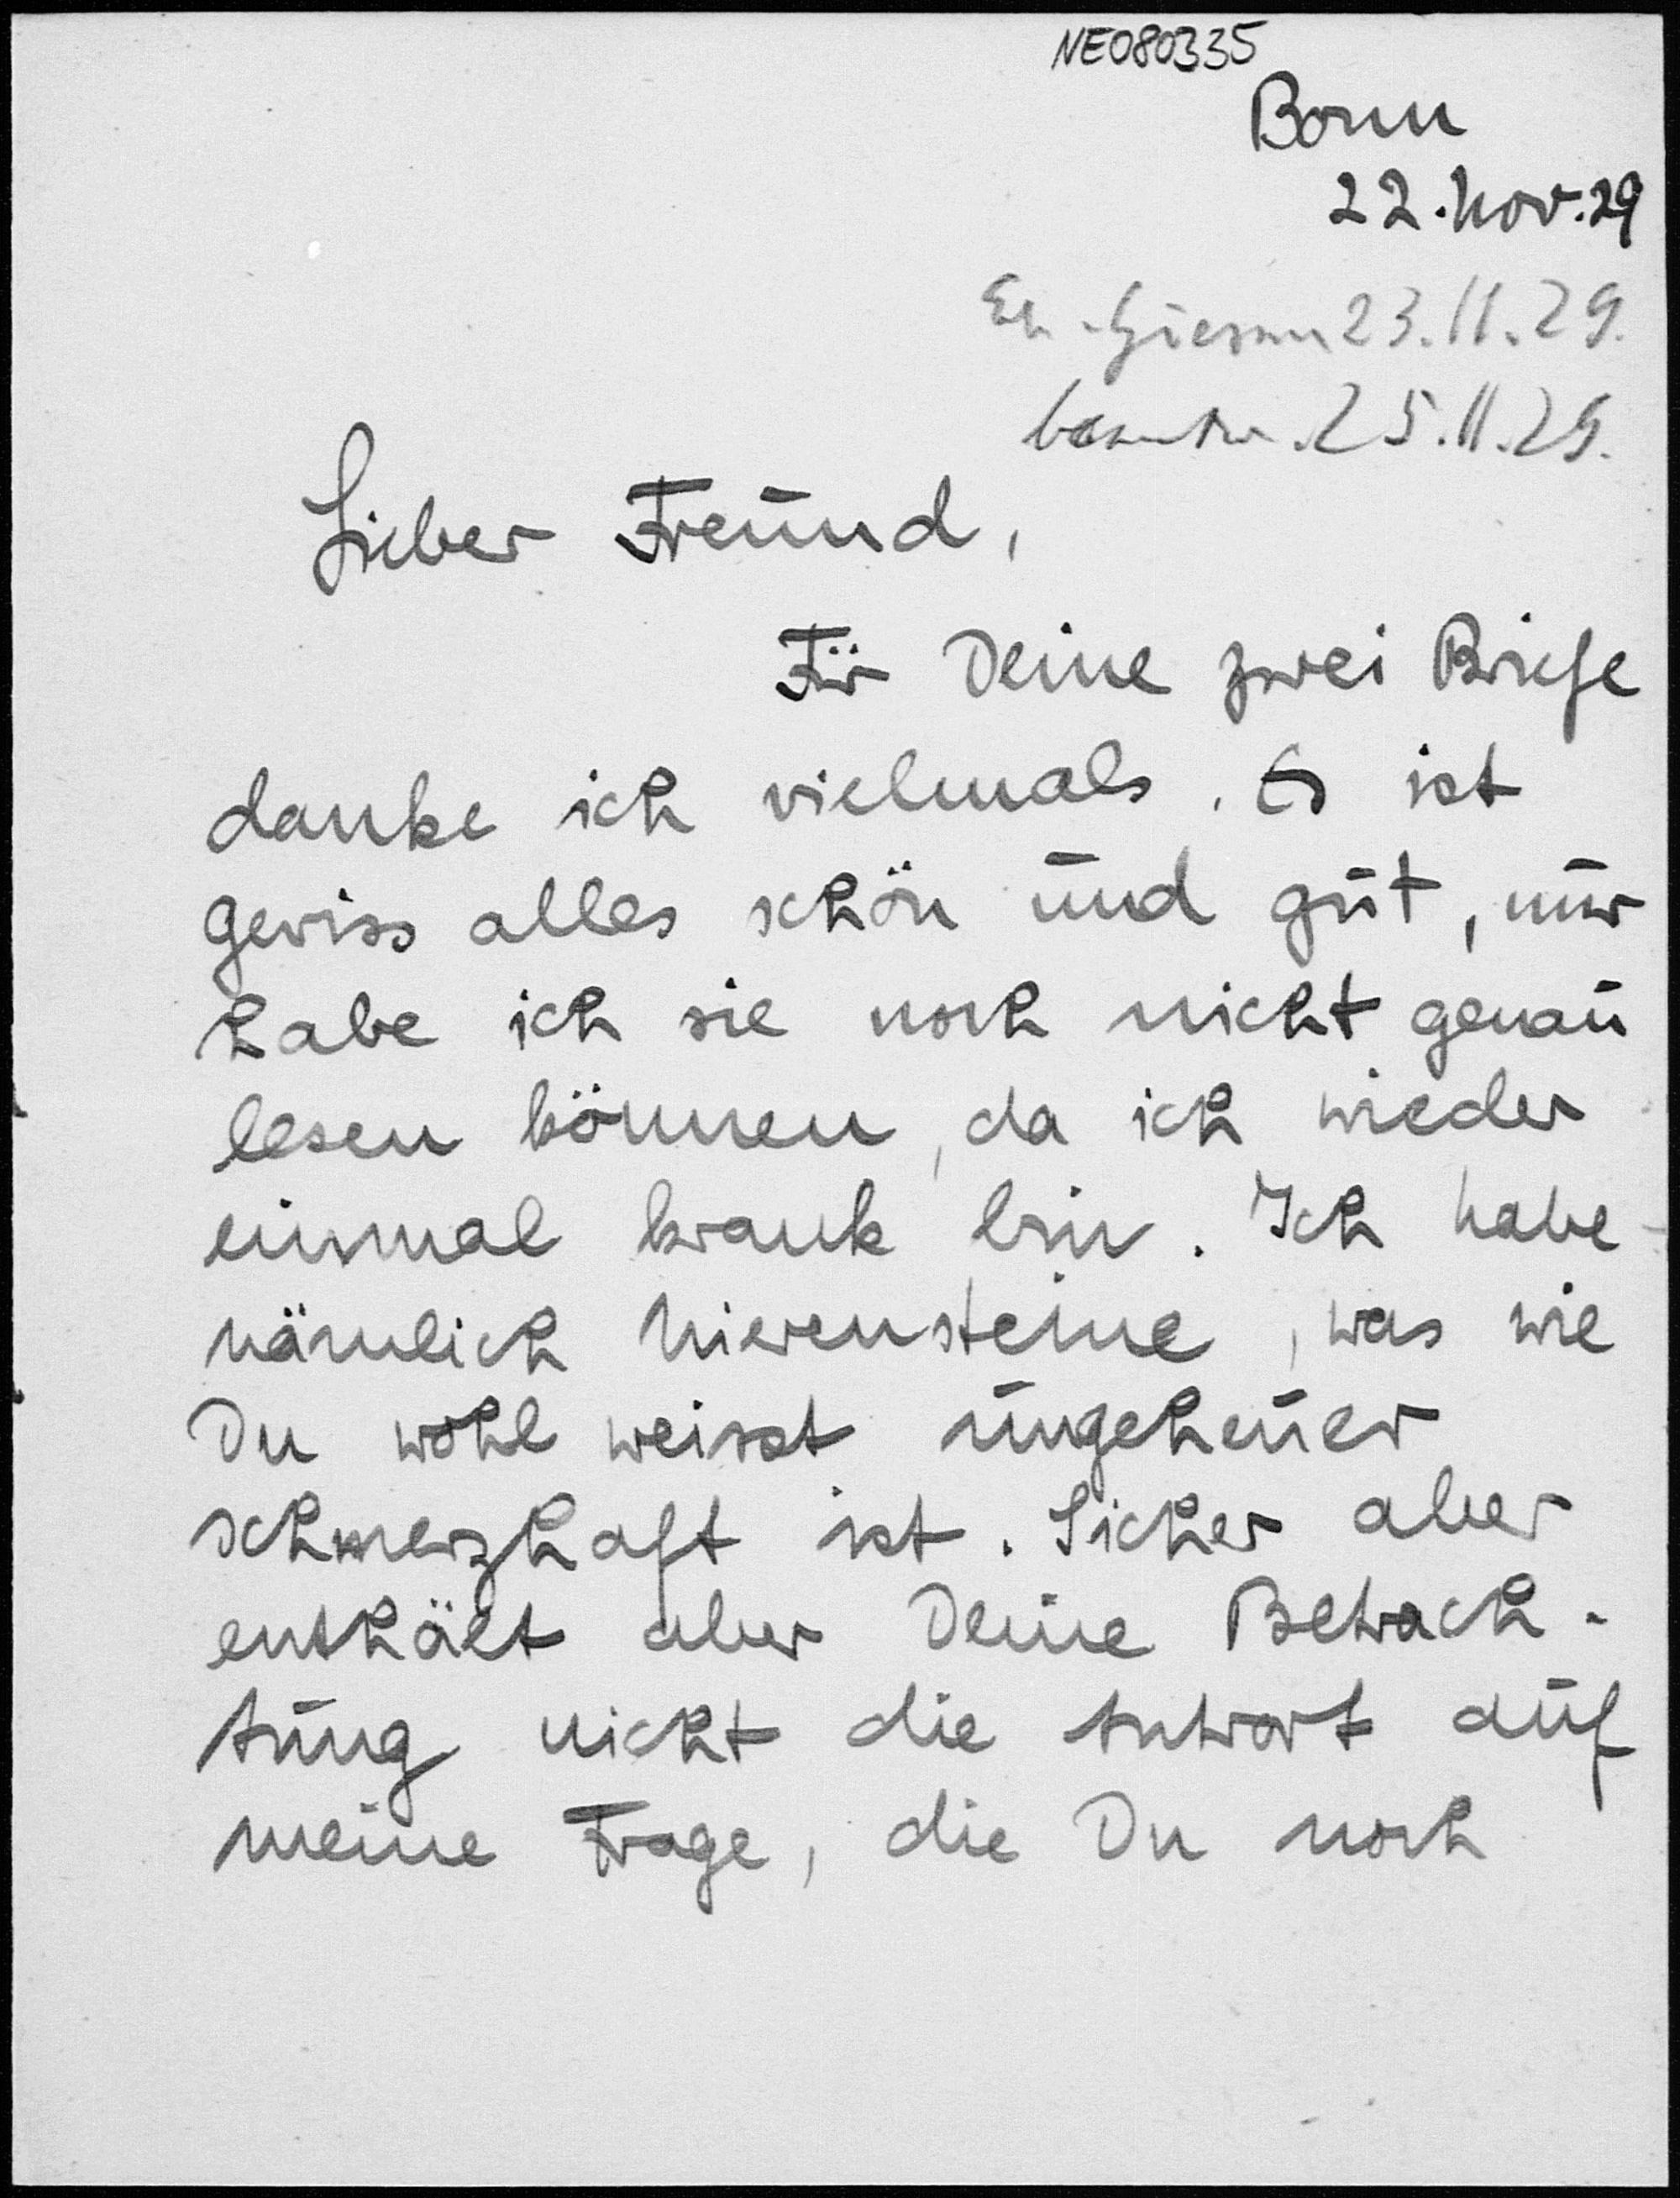 NE080335
Bonn
22. Nov. 29
Eh. Giessen 23.11.29.
beantw. 25.11.29.
Lieber Freund,
Für Deine zwei Briefe
danke ich vielmals. Es ist
gewiss alles schön und gut, nur
habe ich sie noch nicht genau
lesen können, da ich wieder
einmal krank bin. Ich habe
nämlich Nierensteine, was wie
Du wohl weisst ungeheuer
schmerzhaft ist. Sicher aber
enthält aber Deine Betrach-
tung nicht die Antwort auf
meine Frage, die Du noch